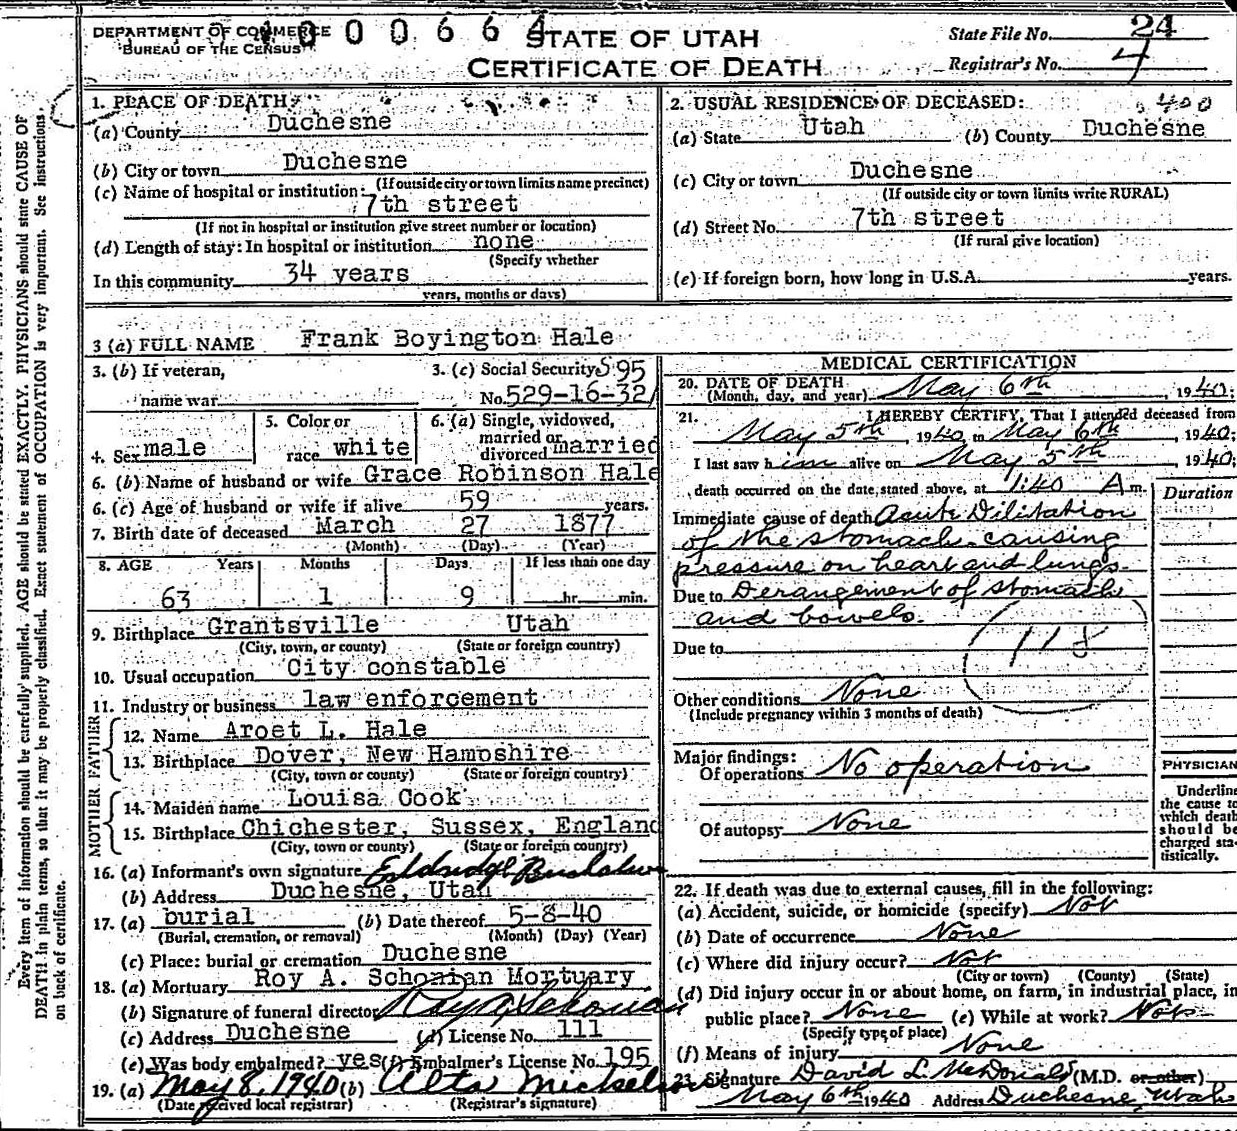 DEPARTMENT OF COMMERCE
BUREAU OF THE CENSUS
0 0 0 6 6 4
STATE OF UTAH
CERTIFICATE OF DEATH
State File No. 24
Registrar's No. 4
1. PLACE OF DEATH:
(a) County Duchesne
(b) City or town Duchesne
(If outside city or town limits name precinct)
(c) Name of hospital or institution:
7th street
(If not in hospital or institution give street number or location)
(d) Length of stay: In hospital or institution none
(Specify whether
In this community 34 years
years, months or days)
2. USUAL RESIDENCE OF DECEASED: 400
(a) State Utah (b) County Duchesne
(c) City or town Duchesne
(If outside city or town limits write RURAL)
(d) Street No. 7th street
(If rural give location)
(e) If foreign born, how long in U.S.A. years.
3 (a) FULL NAME Frank Boyington Hale
3. (b) If veteran,
name war
3. (c) Social Security 595
No. 529-16-32
4. Sex male
5. Color or
race white
6. (a) Single, widowed,
married or
divorced married
6. (b) Name of husband or wife Grace Robinson Hale
6. (c) Age of husband or wife if alive 59 years.
7. Birth date of deceased March 27 1877
(Month) (Day) (Year)
8. AGE Years Months Days If less than one day
63 1 9 hr. min.
9. Birthplace Grantsville Utah
(City, town, or county) (State or foreign country)
10. Usual occupation City constable
11. Industry or business law enforcement
FATHER
12. Name Aroet L. Hale
13. Birthplace Dover, New Hampshire
(City, town or county) (State or foreign country)
MOTHER
14. Maiden name Louisa Cook
15. Birthplace Chichester, Sussex, England
(City, town or county) (State or foreign country)
16. (a) Informant's own signature
(b) Address Duchesne, Utah
17. (a) burial (b) Date thereof 5-8-40
(Burial, cremation, or removal) (Month) (Day) (Year)
(c) Place: burial or cremation Duchesne
18. (a) Mortuary Roy A. Schonian Mortuary
(b) Signature of funeral director Roy A. Schonian
(c) Address Duchesne (d) License No. 111
(e) Was body embalmed? yes (f) Embalmer's License No. 195
19. (a) May 8, 1940 (b) Alta Mickelson
(Date received local registrar) (Registrar's signature)
MEDICAL CERTIFICATION
20. DATE OF DEATH
(Month, day, and year) May 6th, 1940;
21. I HEREBY CERTIFY, That I attended deceased from
May 5th, 1940 to May 6th, 1940;
I last saw him alive on May 5th 1940;
death occurred on the date stated above, at 1:40 A m.
Duration
Immediate cause of death Acute Dilitation
of the stomach causing
pressure on heart and lungs.
Due to Derangement of stomach
and bowels.
Due to
118
Other conditions None
(Include pregnancy within 3 months of death)
Major findings:
Of operations No operation
Of autopsy None
PHYSICIAN
Underline
the cause to
which death
should be
charged sta-
tistically.
22. If death was due to external causes, fill in the following:
(a) Accident, suicide, or homicide (specify) Not
(b) Date of occurrence None
(c) Where did injury occur? Not
(City or town) (County) (State)
(d) Did injury occur in or about home, on farm, in industrial place, in
public place? None (e) While at work? Not
(Specify type of place)
(f) Means of injury None
23. Signature David L. McDonald (M.D. or other)
May 6th 1940 Address Duchesne, Utah
Every item of information should be carefully supplied. AGE should be stated EXACTLY. PHYSICIANS should state CAUSE OF
DEATH in plain terms, so that it may be properly classified. Exact statement of OCCUPATION is very important. See instructions
on back of certificate.